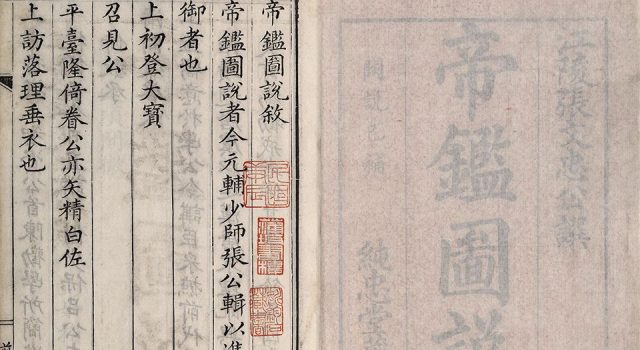 帝鑑圖說敘
帝鑑圖說者今元輔少師張公輯以進
御者也
上初登大寶
召見公
平臺隆倚眷公亦矢精白佐
上訪落理垂衣也
江陵張文忠公譔
帝鑑圖說
純忠堂